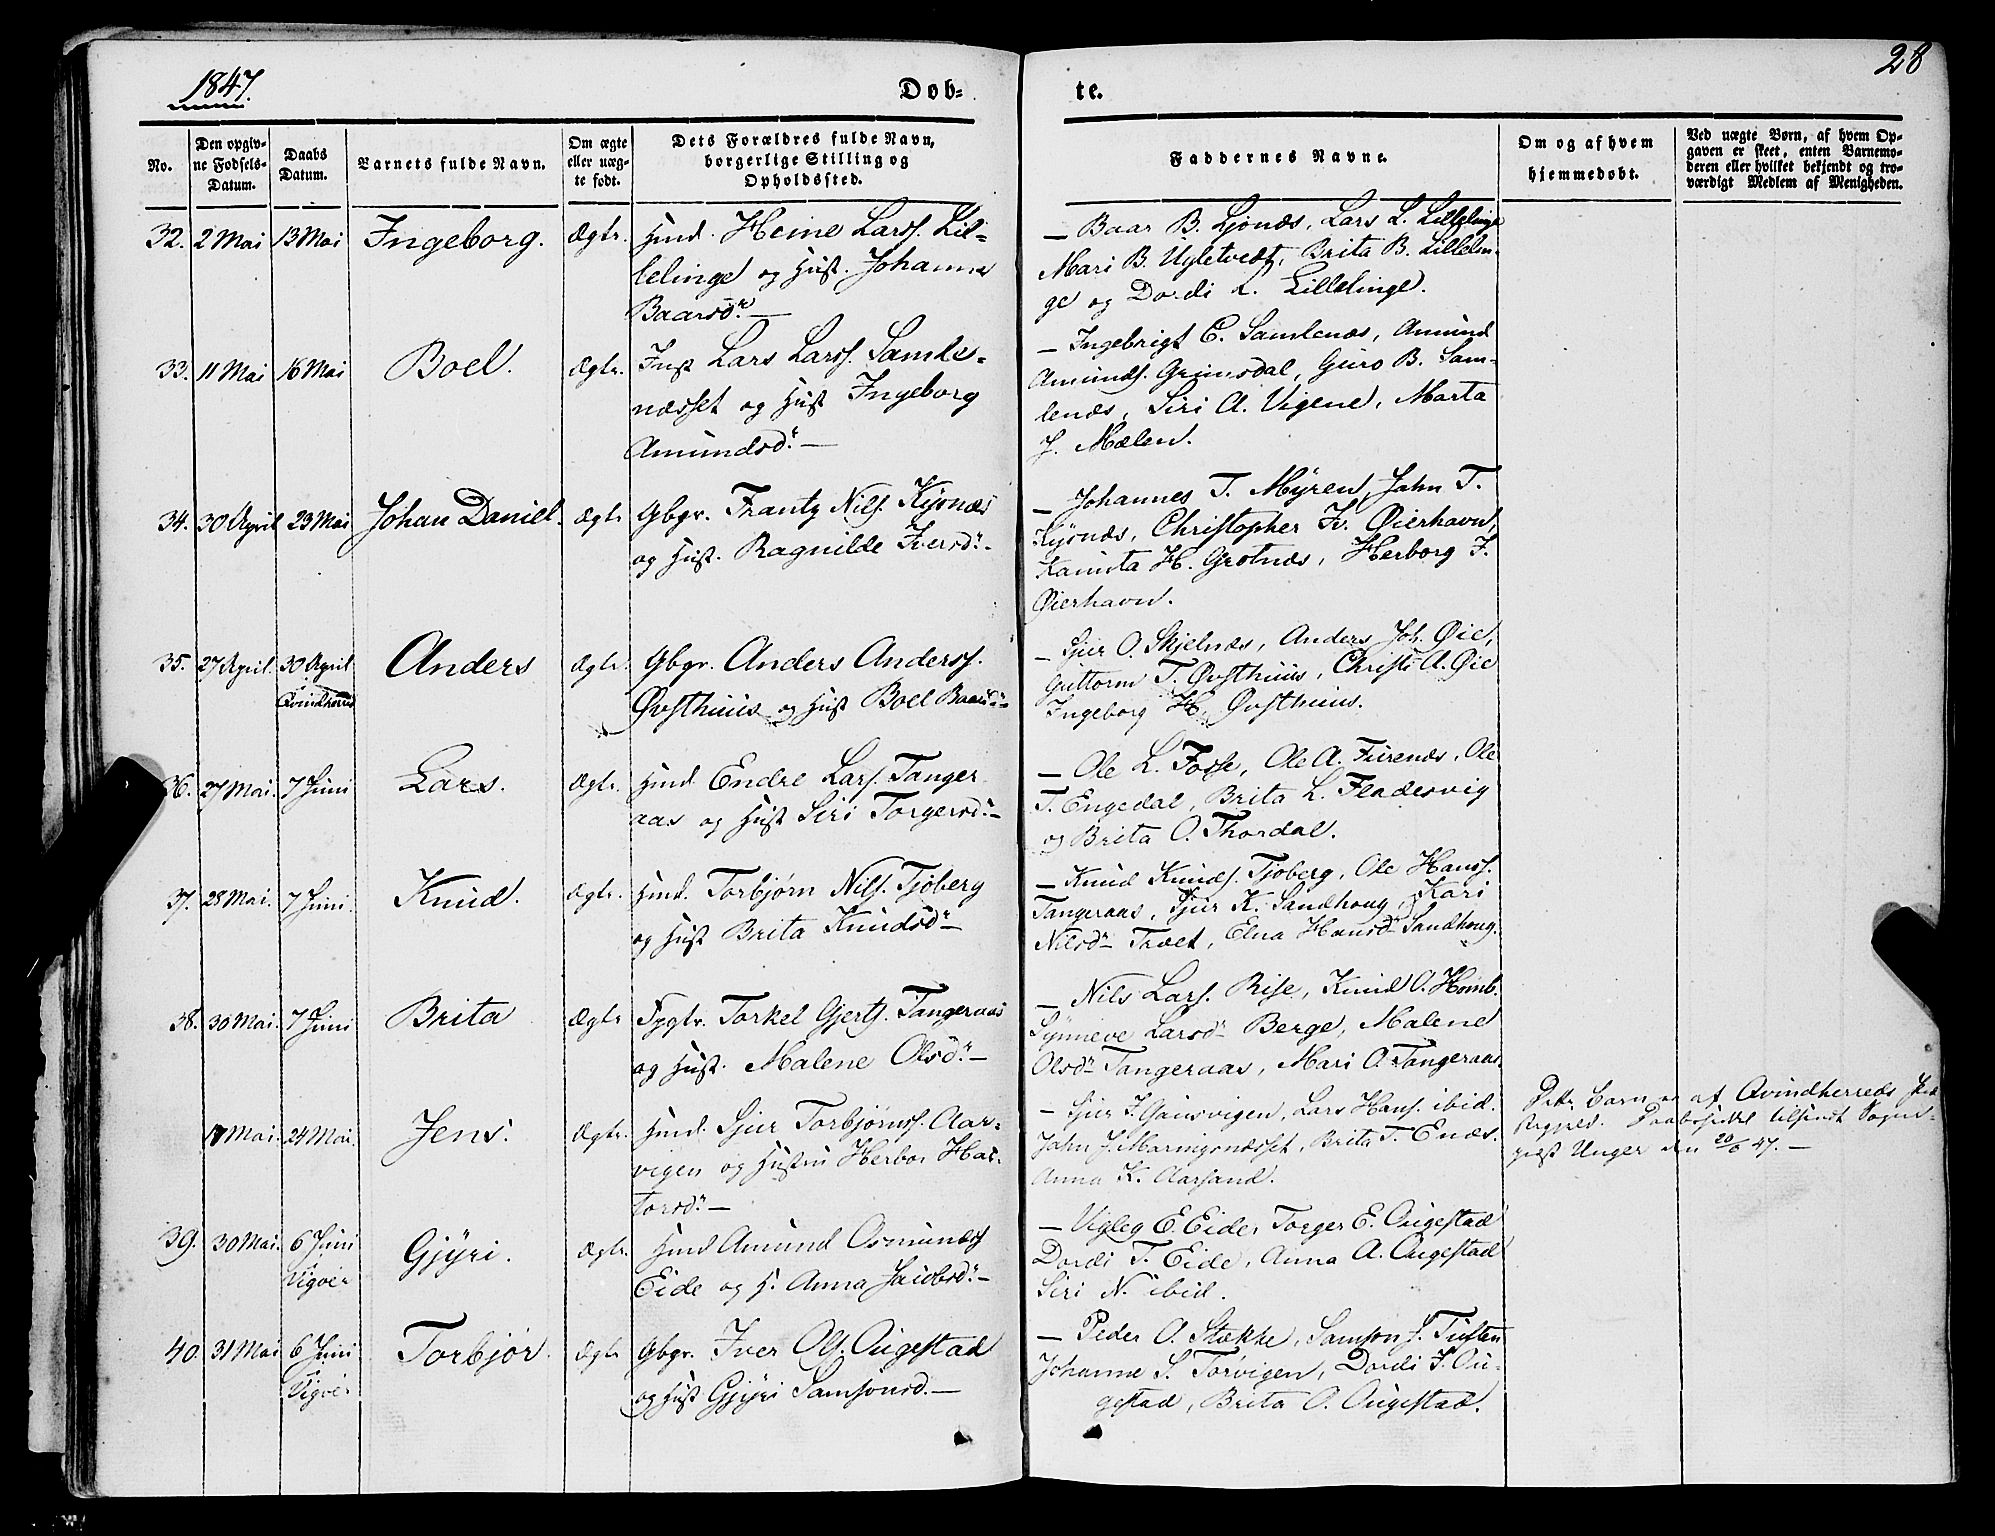 1847.
Døb-
te.
28
No.
Den opgiv-
ne Fødsels-
Datum.
Daabs
Datum.
Barnets fulde Navn.
Om ægte
eller uæg-
te født.
Dets Forældres fulde Navn,
borgerlige Stilling og
Opholdssted.
Faddernes Navne.
Om og af hvem
hjemmedøbt.
Ved uægte Børn, af hvem Op-
gaven er skeet, enten Barnemo-
deren eller hvilket bekjendt og tro-
værdigt Medlem af Menigheden.
32. 2 Mai 13 Mai Ingeborg. Ægte. Huusmd. Heine Larss. Lil-
lelinge og Hust. Johanna
Baarsdr. —
— Baar B. Ljonæs, Lars L. Lillelinge
Mari B. Ugletvedt, Brita B. Lillelin-
ge og Dordi L. Lillelinge.
33. 11 Mai 16 Mai Boel. Ægte. Inst Lars Larss. Samle-
næsset og Hust Ingeborg
Amundsdr. —
— Ingebrigt E. Samlenæs, Amund
Amunds. Grimsdal, Guro B. Sam-
lenæs, Siri A. Vigene, Marta
J. Mælen.
34. 30 April 23 Mai Johan Daniel. Ægte Gbgr. Frantz Nils. Kysnæs
og Hust. Ragnilde Iversdr. -
— Johannes T. Myren, John T.
Kysnæs, Christopher Iv. Øierhavn,
H. Grotnæs, Herborg I.
Øierhavn.
35. 27 April 30 April Anders Ægte. Gbgr. Anders Anderss.
Qvindherred
Øvsthuus og Hust Boel Baarsdr -
— Sjur O. Skjelnæs, Anders Joh. Øie,
Guttorm T. Øvsthuus, Christi A. Øie
Ingeborg H. Øvsthuus.
36. 27 Mai. 7 Juni Lars. Ægte. Huusmd Endre Lars. Tanger-
aas og Hust Siri Torgersdr. —
— Ole L. Fosse, Ole A. Furenæs, Ole
T. Engedal, Brita L. Fladesvig
og Brita O. Thordal.
37. 28 Mai. 7 Juni. Knud. Ægte. Huusmd. Torbjørn Nils. Tjøberg
og Hust Brita Knudsdr —
— Knud Knuds. Tjøberg, Ole Hanss.
Tangeraas, Sjur K. Sandhoug, Kari
Nilsdr Træet, Elna Hansdr Sandhoug.
38. 30 Mai. 7 Juni Brita Ægte Torkel Gjerts. Tangeraas
og Hust. Malene Olsdr. —
— Nils Lars. Rise, Knud O. Homb.
Synneve Larsdr Berge, Malene
Olsdr Tangeraas, Mari O. Tangeraas.
17 Mai. 24 Mai. Jens. Ægte. Huusmd. Sjur Torbjørnss. Aar-
vigen og Hustru Herbor Hal-
torsdr. —
— Sjur J. Gausvigen, Lars Hans. ibid.
John J. Maringsnæsset, Brita T. Enæs.
Anna K. Aarsand.
Dette Barn er af Qvindherreds Præ-
Daabsseddel tilsendt Sogne-
præst Unger den 20/6 47. —
39. 30 Mai. 6 Juni Gjyri. Ægte. Huusmd Amund Osmunds
Vigøer
Eide og H. Anna Jacobsdr. —
— Vigleg E. Eide, Torger E. Augestad
Dordi T. Eide, Anna A. Augestad
Siri N. ibid.
40. 31 Mai 6 Juni Torbjør. Ægte Gbgr. Iver Ols. Augestad
Vigøer
og Hust Gjyri Samsonsd. —
— Peder O. Stække, Samson J. Tusten
Johanne S. Torvigen, Dordi I. Au-
gestad, Brita O. Augestad.